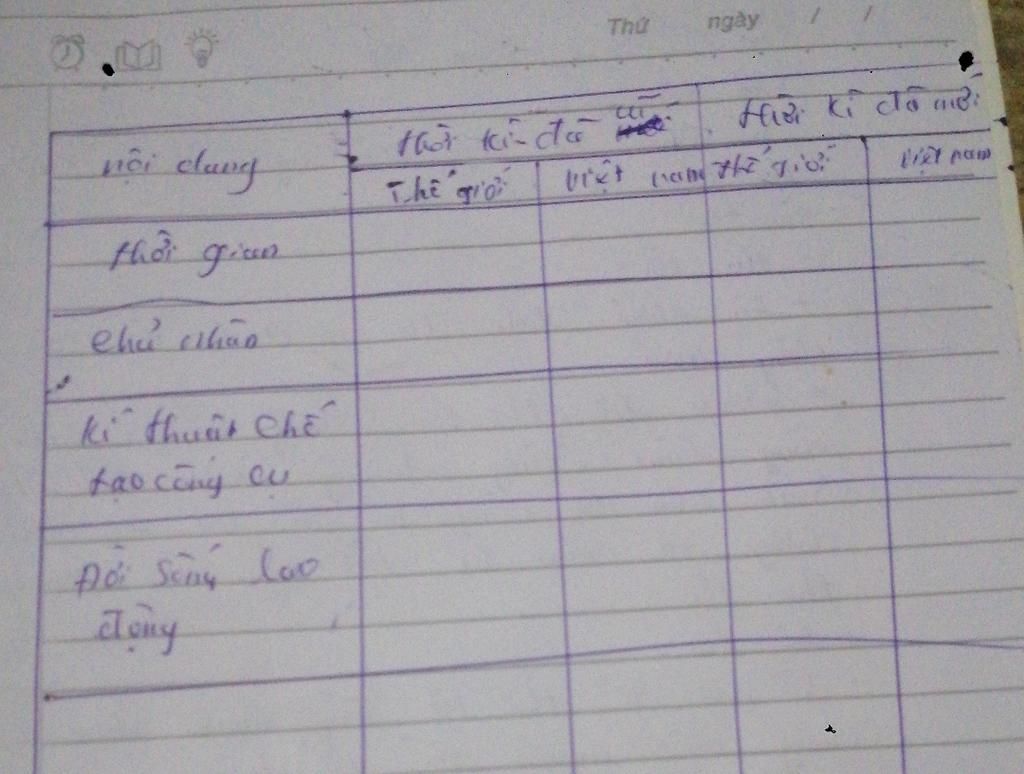 Thứ ngày / /
nội dung thời kì đồ cũ thời kì đồ mới
Thế giới việt nam thế giới việt nam
thời gian
chủ nhân
kĩ thuật chế
tạo công cụ
Đời sống lao
động